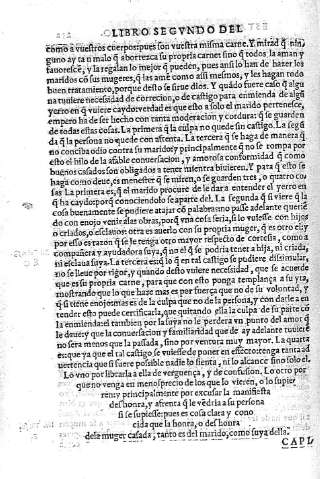 LIBRO SEGVNDO DEL
como a vuestros cuerpos: pues son vuestra misma carne. Y mirad q̃ nin
guno ay tan malo q̃ aborrezca su propria carne sino q̃ todos la aman y
fauorescẽ, y la regalan lo mejor q̃ pueden, pues ansi lo han de hazer los
maridos cõ sus mugeres, q̃ las amẽ como assi mesmos, y les hagan todo
buen tratamiento, porque desto se sirue dios. Y quãdo fuere caso q̃ algu
na tuuiere necessidad de correcion, o de castigo para emienda de algũ
yerro en q̃ uuiere caydo: verdad es que esto a solo el marido pertenesce,
empero ha de ser hecho con tanta moderacion y cordura: q̃ se guarden
de todas estas cosas. La primera q̃ la culpa no quede sin castigo. La segũ
da q̃ la persona no quede con afrenta. La tercera q̃ se haga de manera q̃
no conciba odio contra su marido: y principalmente q̃ no se rompa por
esto el hilo de la afable conuersacion, y amorosa conformidad q̃ como
buenos casados son obligados a tener mientra biuieren. Y para q̃ esto se
haga como deue, es menester q̃ se miren, o se guarden tres, o quatro co
sas La primera es, q̃ el marido procure de le dara entender el yerro en
q̃ ha caydo: porq̃ conosciendolo se aparte del. La segunda q̃ si viere q̃ la
cosa buenamente se pudiere atajar cõ palabras no passe adelante
do con enojo venir a las obras, porq̃ vna cosa seria, si lo vuiesse con hijos
o criados, o esclauos otra es auerlo con su propria muger, q̃ es otro el: y
por esso es razon q̃ se le tenga otro mayor respecto de cortesia, como a
compañera y ayudadora suya, q̃ no el q̃ se podria tener a hija, ni criada,
ni esclaua suya. La tercera es: q̃ lo q̃ en tal castigo se pudiere dissimular,
no se lleue por rigor, y quando desto vuiere necessidad, que se acuerde
que es su propria carne, para que con esto ponga templança a su yra,
mostrando que lo que haze mas es por fuerça que no de su voluntad, y
q̃ si tiene enojo: mas es de la culpa que no de la persona, y con darle a en
tender esto puede certificarla, que quitando ella la culpa de su parte cõ
la emienda: el tambien por la suya no le perdera vn punto del amor q̃
le deue: y que la conuersacion y familiaridad que de ay adelante tuuierẽ
no sera menos que la passada, sino por ventura muy mayor. La quarta
es: que ya que el tal castigo se vuiesse de poner en effecto: tenga tanta ad
uertencia que si fuere possible nadie lo sienta, ni lo alcance sino solo el.
Lo vno por librarla a ella de verguença, y de confusion. Lo otro por
que no venga en menosprecio de los que lo vieren, o lo supie
ren: y principalmente por excusar la manifiesta
deshonra, y afrenta q̃ le vẽdria a su persona
si se supiesse: pues es cosa clara y cono
cida que la honra, o deshonra
dela muger casada, tanto es del marido, como suya della.
CAPI.